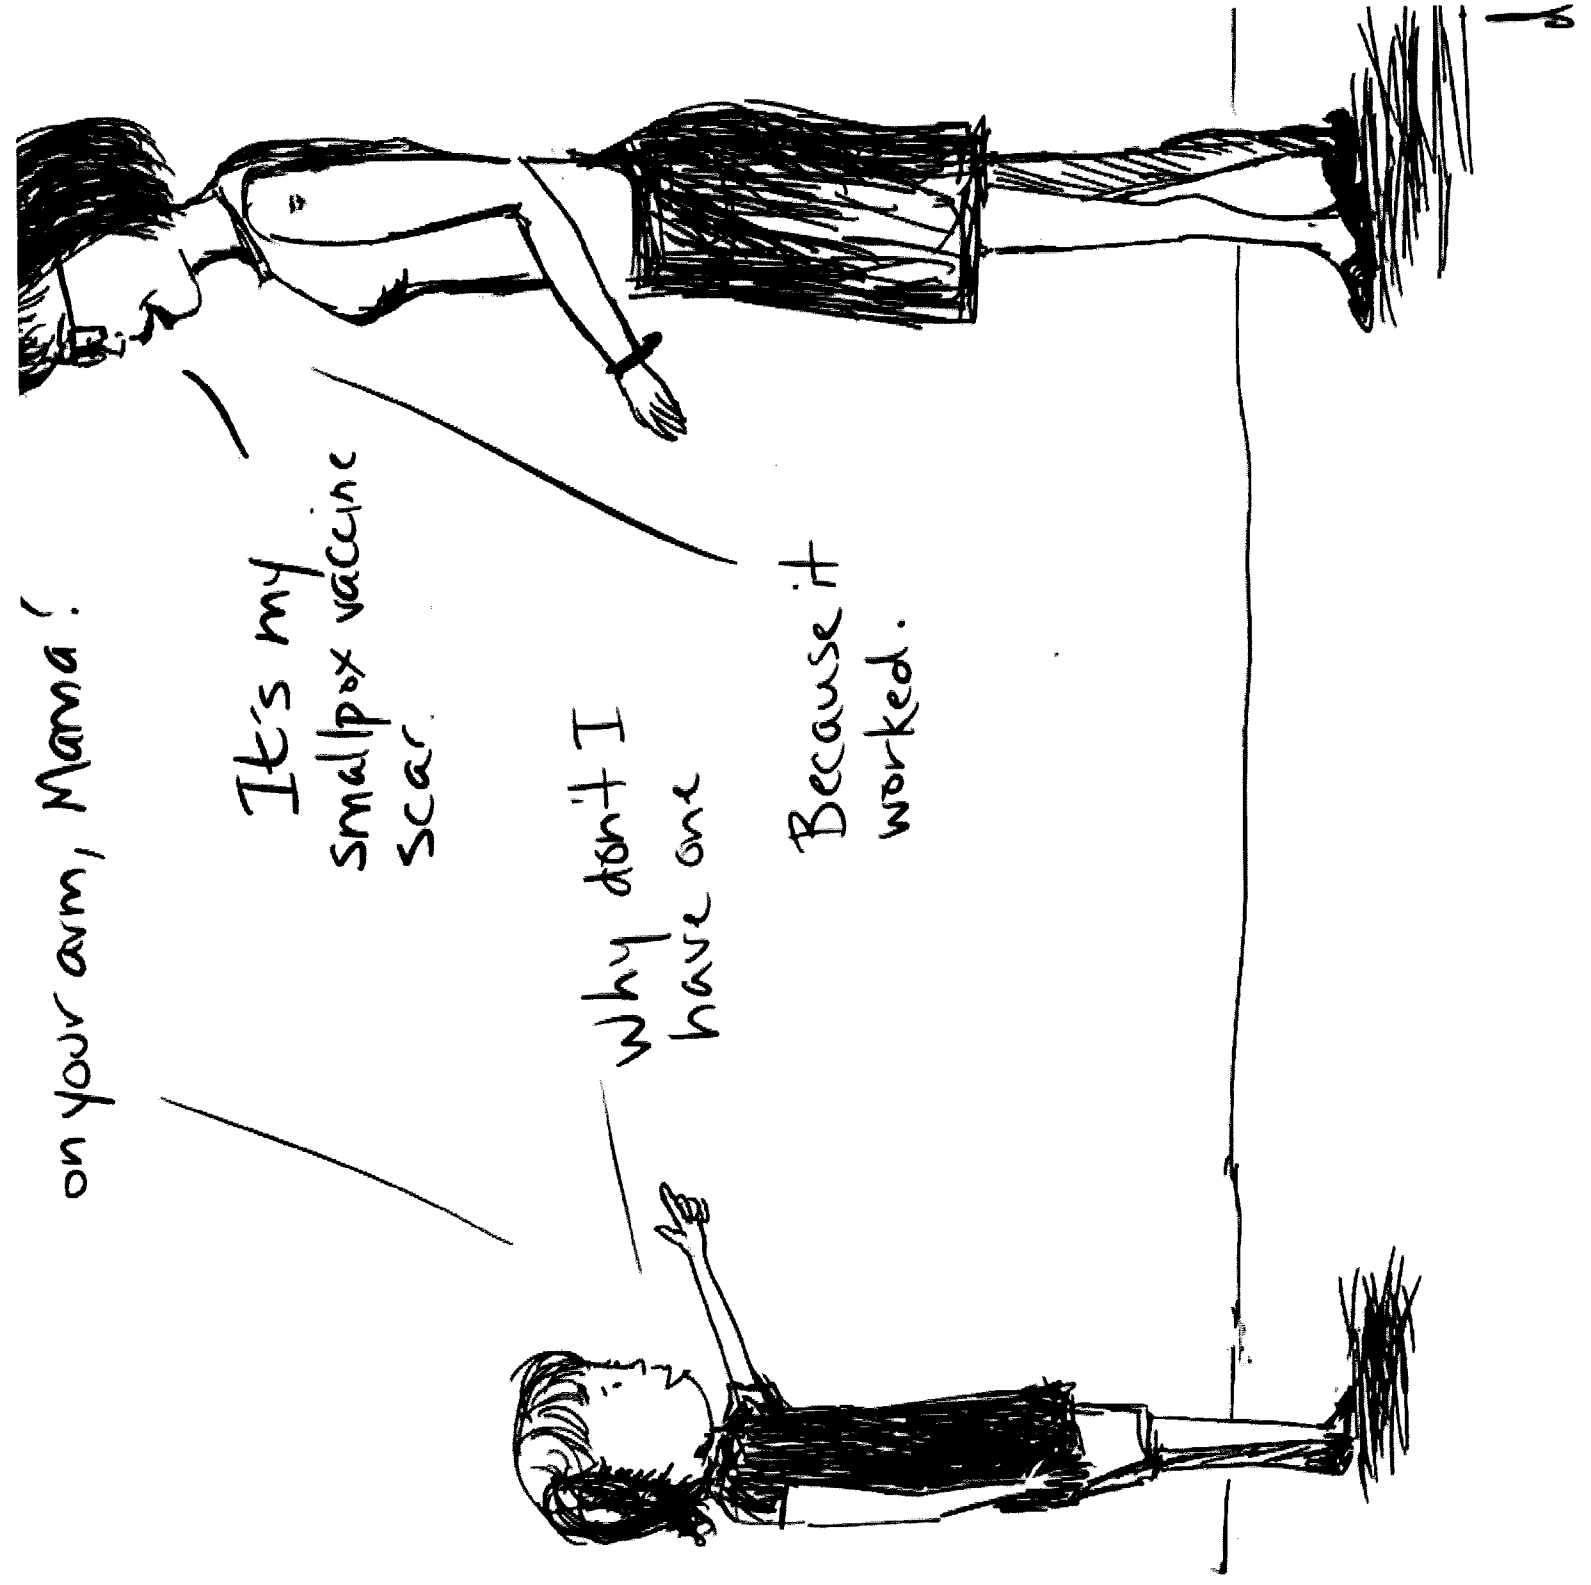 on your arm, Mama?
It's my
smallpox vaccine
scar.
Why don't I
have one
Because it
worked.